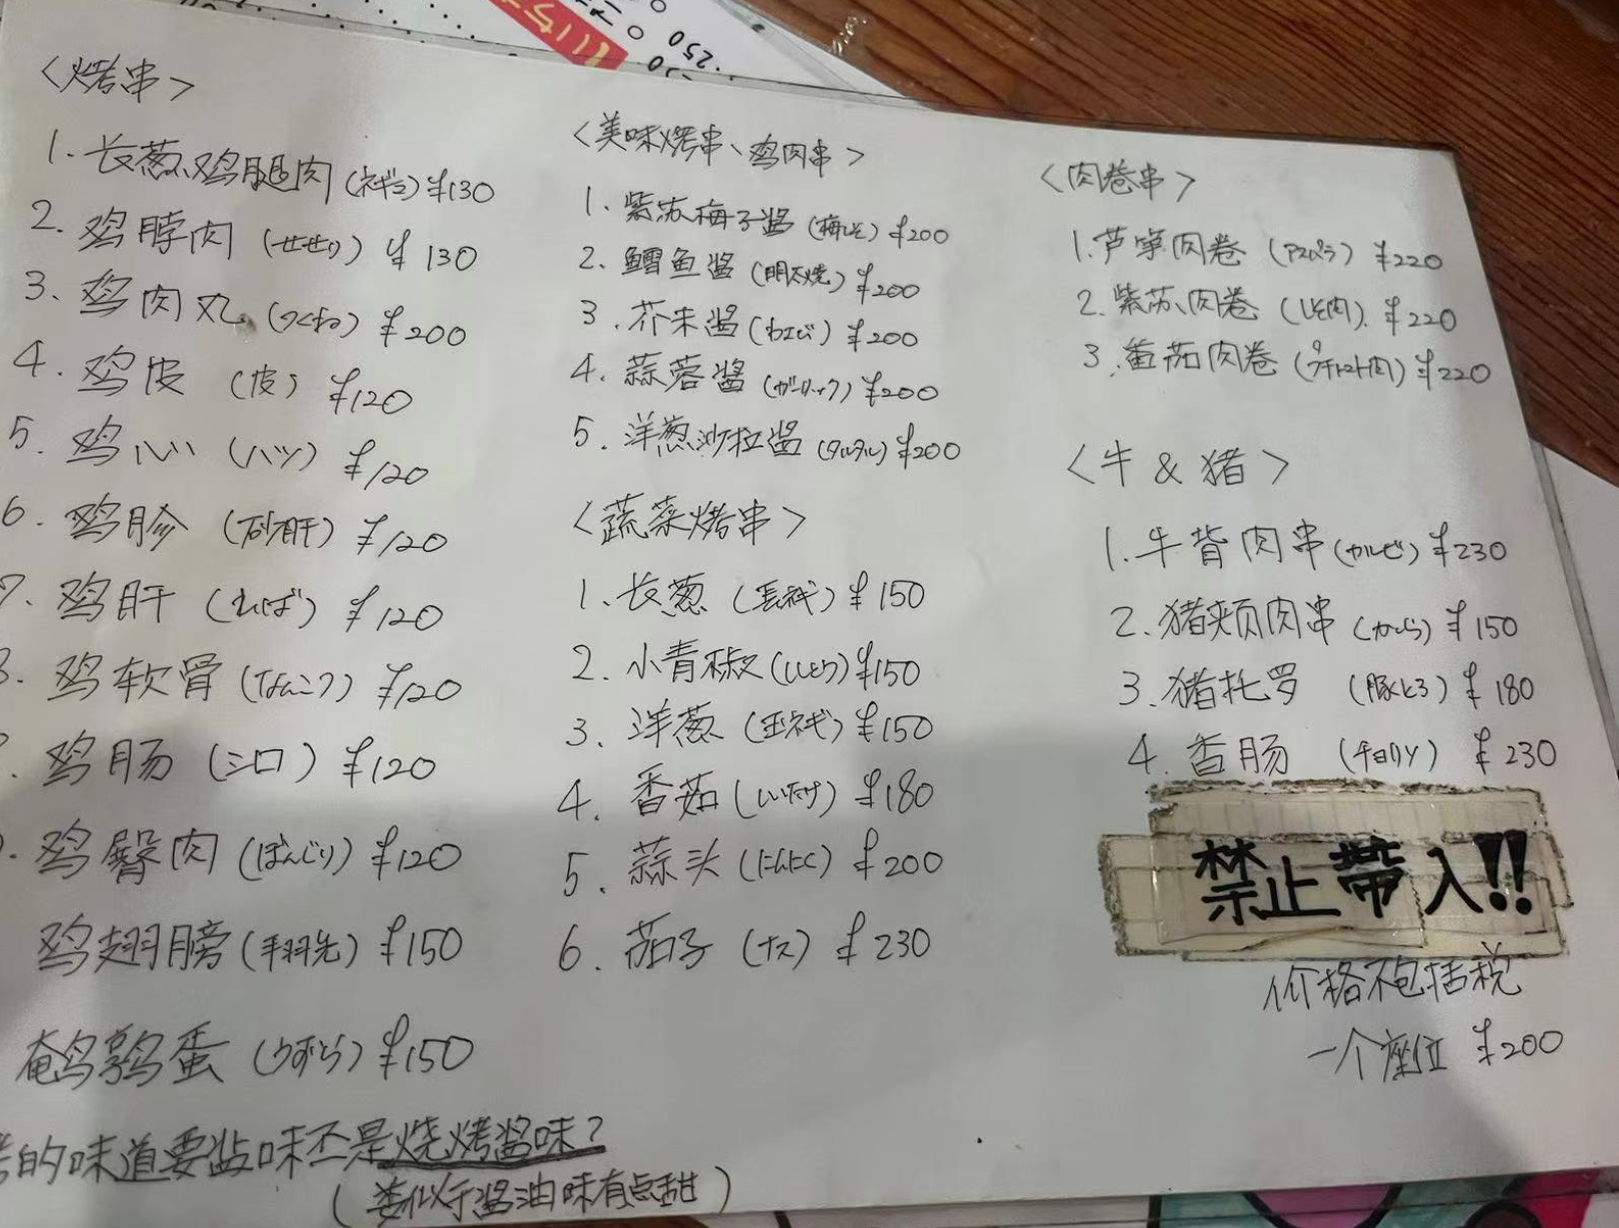 <烤串>
1. 长葱鸡腿肉 (ネギミ) ¥130
2. 鸡脖肉 (せせり) ¥130
3. 鸡肉丸 (つくね) ¥200
4. 鸡皮 (皮) ¥120
5. 鸡心 (ハツ) ¥120
6. 鸡胗 (砂肝) ¥120
7. 鸡肝 (ればー) ¥120
鸡软骨 (なんこつ) ¥120
鸡肠 (シロ) ¥120
鸡臀肉 (ぼんじり) ¥120
鸡翅膀 (手羽先) ¥150
鹌鹑蛋 (うずら) ¥150
的味道要盐味还是烧烤酱味?
(类似于酱油味有点甜)
<美味烤串、鸡肉串>
1. 紫苏梅子酱 (梅しそ) ¥200
2. 鳕鱼酱 (明太焼) ¥200
3. 芥末酱 (わさび) ¥200
4. 蒜蓉酱 (ガーリック) ¥200
5. 洋葱沙拉酱 (タルタル) ¥200
<蔬菜烤串>
1. 长葱 (長ネギ) ¥150
2. 小青椒 (ししとう) ¥150
3. 洋葱 (玉ネギ) ¥150
4. 香菇 (しいたけ) ¥180
5. 蒜头 (にんにく) ¥200
6. 茄子 (ナス) ¥230
<肉卷串>
1. 芦笋肉卷 (アスパラ) ¥220
2. 紫苏肉卷 (しそ肉) ¥220
3. 番茄肉卷 (プチトマト肉) ¥220
<牛 & 猪>
1. 牛背肉串 (カルビ) ¥230
2. 猪颊肉串 (かしら) ¥150
3. 猪托罗 (豚とろ) ¥180
4. 香肠 ¥230
禁止帶入!!
价格不包括税
一个座位 ¥200
250